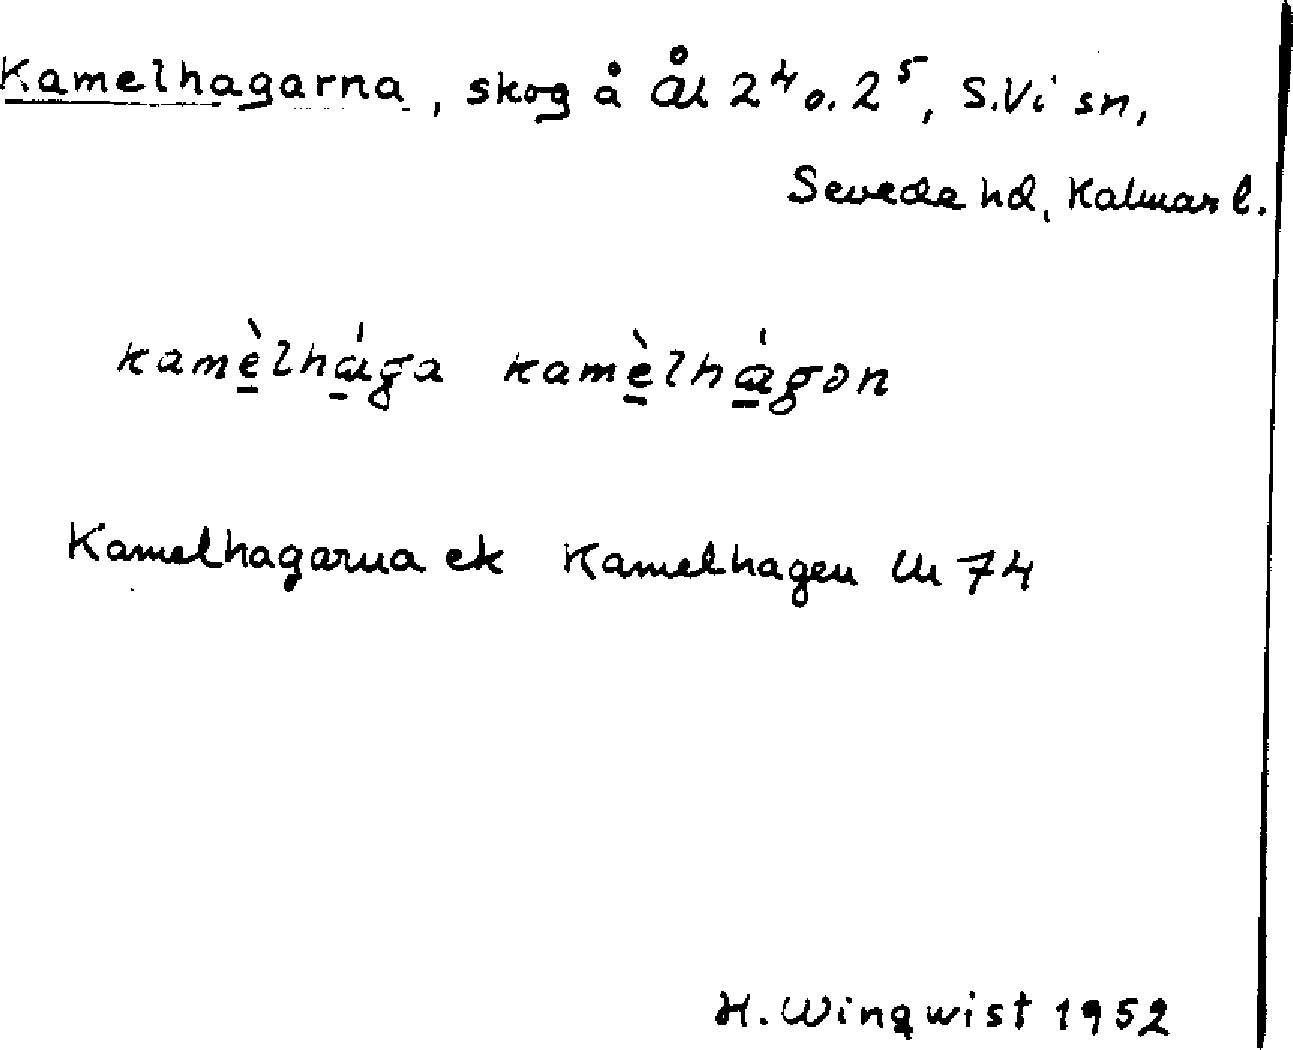 Kamelhagarna, skog å Ål 2⁴ o. 2⁵, S.Vi sn,
Sevede hd, Kalmar l.
kamèlhága kamèlhágon
Kamelhagarna ek Kamelhagen Lm 74
H. Winqwist 1952